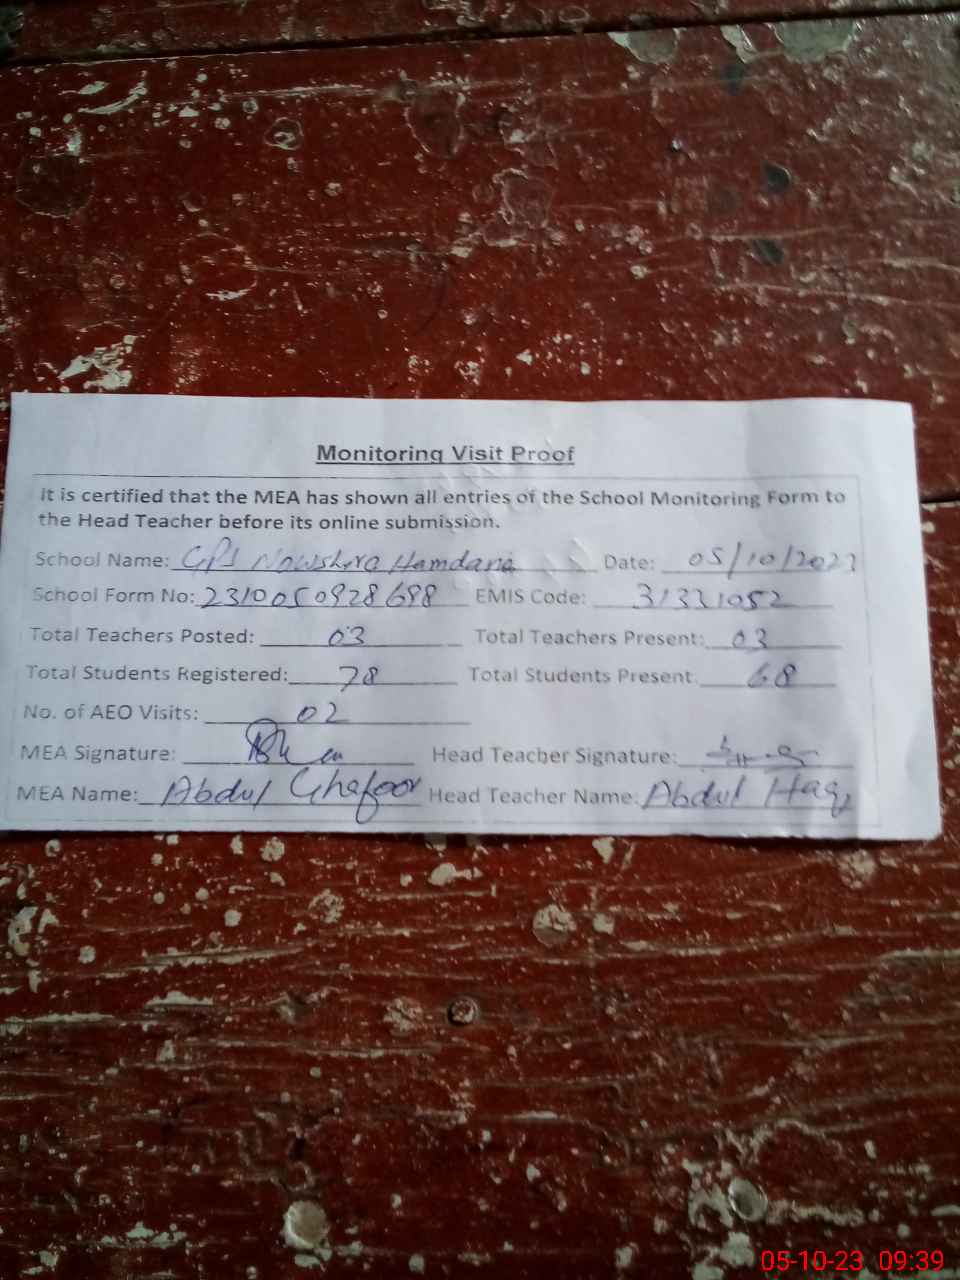 Monitoring Visit Proof
It is certified that the MEA has shown all entries of the School Monitoring Form to
the Head Teacher before its online submission.
School Name: GPS Nowshera Hamdania Date: 05/10/2023
School Form No: 2310050928698 EMIS Code: 31331052
Total Teachers Posted: 03 Total Teachers Present: 03
Total Students Registered: 78 Total Students Present: 68
No. of AEO Visits: 02
MEA Signature: Head Teacher Signature:
MEA Name: Abdul Ghafoor Head Teacher Name: Abdul Haq
05-10-23 09:39